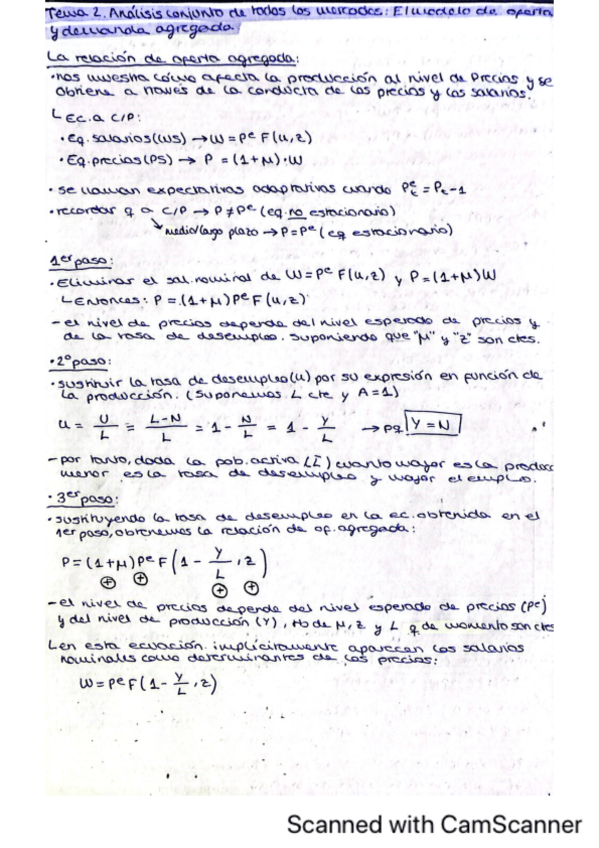 Tema 2. Análisis conjunto de todos los mercados: El modelo de oferta
y demanda agregada.
La relación de oferta agregada:
• nos muestra cómo afecta la producción al nivel de Precios y se
obtiene a través de la conducta de los precios y los salarios.
└ Ec. a C/P:
• Eq. salarios (WS) → W = Pᵉ F(u,z)
• Eq. precios (PS) → P = (1+μ)·W
• se llaman expectativas adaptativas cuando Pᵉₜ = Pₜ-1
• recordar q a C/P → P ≠ Pᵉ (eq. no estacionario)
↘ medio/largo plazo → P = Pᵉ (eq estacionario)
1er paso:
• Eliminar el sal. nominal de W = Pᵉ F(u,z) y P = (1+μ)W
└ Entonces: P = (1+μ) Pᵉ F(u,z)
- el nivel de precios depende del nivel esperado de precios y
de la tasa de desempleo. Suponiendo que "μ" y "z" son ctes.
• 2º paso:
• sustituir la tasa de desempleo (u) por su expresión en función de
la producción. (Suponemos L cte y A=1)
u = U/L = L-N/L = 1 - N/L = 1 - Y/L → pq Y = N
- por tanto, dada la pob. activa (L̄) cuanto mayor es la produc
menor es la tasa de desempleo y mayor el emplo.
• 3er paso:
• sustituyendo la tasa de desempleo en la ec. obtenida en el
1er paso, obtenemos la relación de of. agregada:
P = (1+μ) Pᵉ F (1 - Y/L , z)
⊕ ⊕ ⊕ ⊕
- el nivel de precios depende del nivel esperado de precios (Pᵉ)
y del nivel de producción (Y), de μ, z y L q de momento son ctes
└ en esta ecuación, implícitamente aparecen los salarios
nominales como determinantes de los precios:
W = Pᵉ F (1 - Y/L , z)
Scanned with CamScanner